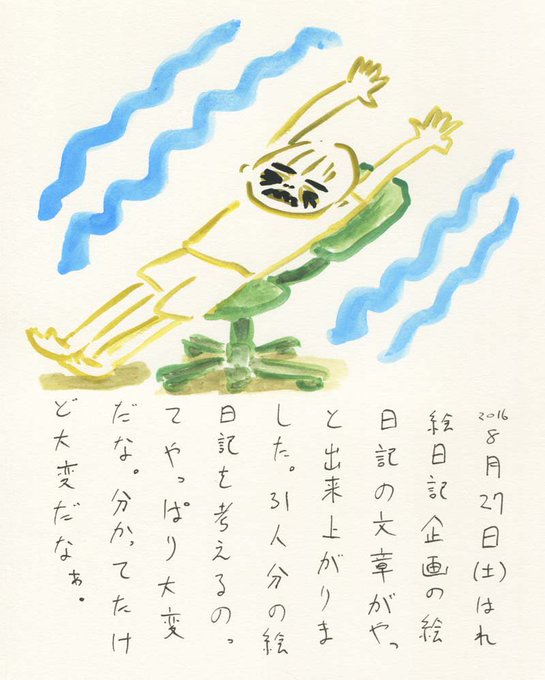 2016 8月27日(土)はれ
絵日記企画の絵
日記の文章がやっ
と出来上がりま
した。31人分の絵
日記を考えるのっ
てやっぱり大変
だな。分かってたけ
ど大変だなぁ。